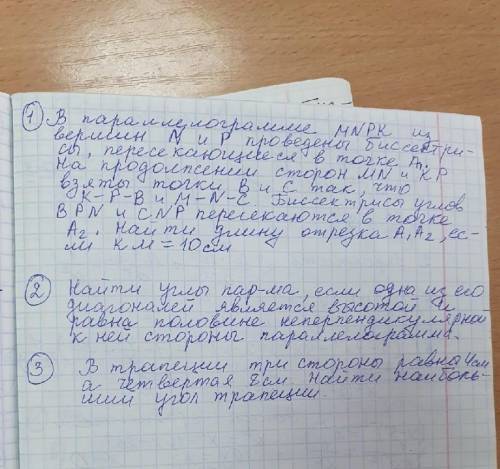 ① В параллелограмме MNPK из
вершин N и P проведены биссектри-
сы, пересекающиеся в точке A₁.
На продолжении сторон MN и KP
взяты точки B и C так, что
K-P-B и M-N-C. Биссектрисы углов
BPN и CNP пересекаются в точке
A₂. Найти длину отрезка A₁A₂, ес-
ли KM = 10см
② Найти углы пар-ма, если одна из его
диагоналей является высотой и
равна половине неперпендикулярной
к ней стороны параллелограмма.
③ В трапеции три стороны равны 4см
а четвертая 8см. Найти наиболь-
ший угол трапеции.